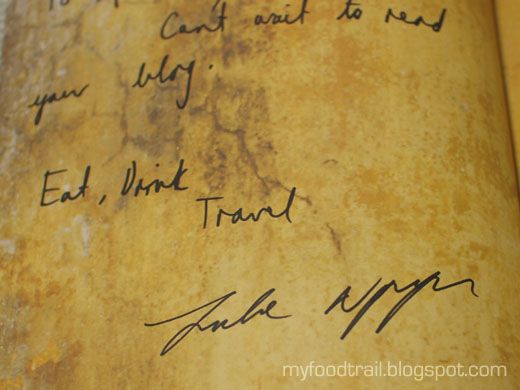 To
Can't wait to read
your blog.
Eat, Drink
Travel
Luke Nguyen
myfoodtrail.blogspot.com